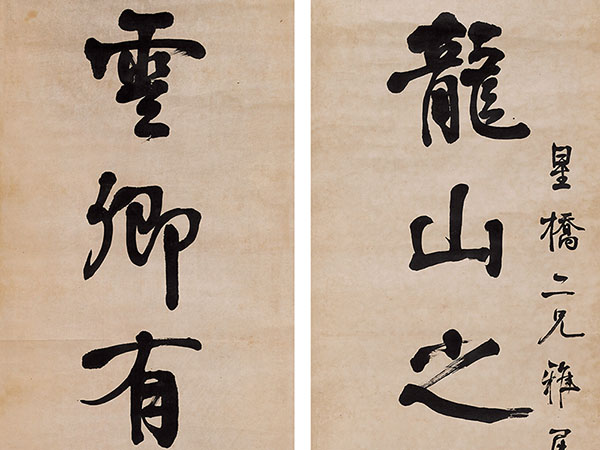 星橋二兄雅
龍山之
雲卿有